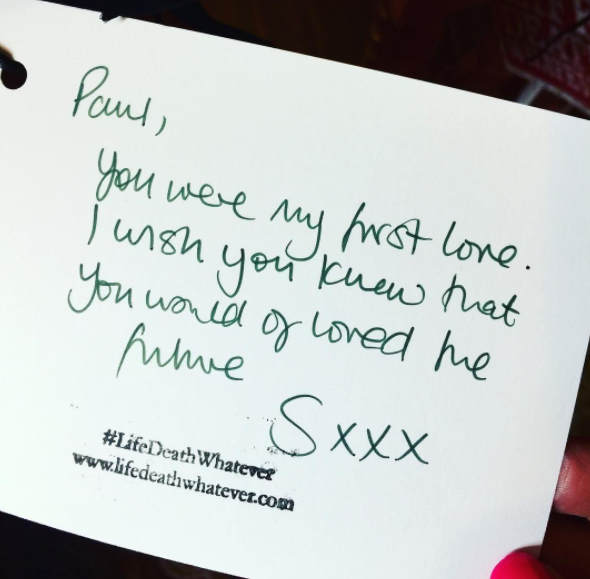 Paul,
You were my first love.
I wish you knew that
You would of loved the
future
Sxxx
#LifeDeathWhatever
www.lifedeathwhatever.com